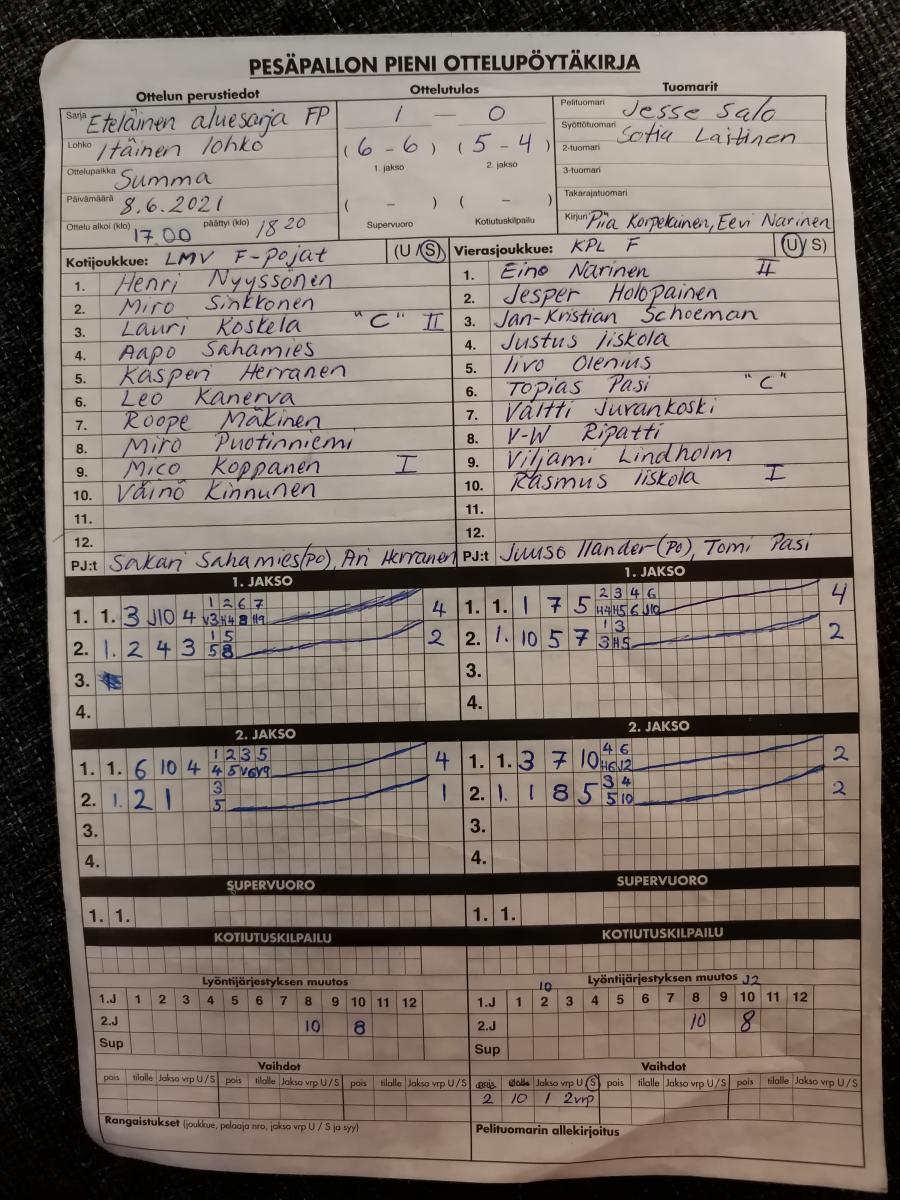 PESÄPALLON PIENI OTTELUPÖYTÄKIRJA
Ottelun perustiedot
Ottelutulos
Tuomarit
Sarja Eteläinen aluesarja FP
Lohko Itäinen lohko
Ottelupaikka Summa
Päivämäärä 8.6.2021
Ottelu alkoi (klo) 17.00 päättyi (klo) 18 20
1 — 0
( 6 - 6 ) ( 5 - 4 )
1. jakso 2. jakso
( – ) ( – )
Supervuoro Kotiutuskilpailu
Pelituomari Jesse Salo
Syöttötuomari Sofia Laitinen
2-tuomari
3-tuomari
Takarajatuomari
Kirjuri Piia Korpelainen, Eevi Narinen
Kotijoukkue: LMV F-pojat (U/S)
1. Henri Nyyssönen
2. Miro Sinkkonen
3. Lauri Koskela "C" II
4. Aapo Sahamies
5. Kasperi Herranen
6. Leo Kanerva
7. Roope Mäkinen
8. Miro Puotinniemi
9. Mico Koppanen I
10. Väinö Kinnunen
11.
12.
PJ:t Sakari Sahamies (PO), Ari Herranen
Vierasjoukkue: KPL F (U/S)
1. Eino Narinen II
2. Jesper Holopainen
3. Jan-Kristian Schoeman
4. Justus Iiskola
5. Iivo Olenius
6. Topias Pasi "C"
7. Valtti Jurankoski
8. V-W Ripatti
9. Viljami Lindholm
10. Rasmus Iiskola I
11.
12.
PJ:t Juuso Ilander (PO), Tomi Pasi
1. JAKSO
1 2 6 7
1. 1. 3 J10 4 V3 H4 8 H9 4
1 5
2. 1. 2 4 3 5 8 2
3.
4.
1. JAKSO
2 3 4 6
1. 1. 1 7 5 H4 H5 6 J10 4
1 3
2. 1. 10 5 7 3 H5 2
3.
4.
2. JAKSO
1 2 3 5
1. 1. 6 10 4 4 5 V6 V9 4
3
2. 1. 2 1 5 1
3.
4.
2. JAKSO
4 6
1. 1. 3 7 10 H6 J2 2
3 4
2. 1. 1 8 5 5 10 2
3.
4.
SUPERVUORO
1. 1.
SUPERVUORO
1. 1.
KOTIUTUSKILPAILU
KOTIUTUSKILPAILU
Lyöntijärjestyksen muutos
1.J 1 2 3 4 5 6 7 8 9 10 11 12
2.J 10 8
Sup
Lyöntijärjestyksen muutos J2
10
1.J 1 2 3 4 5 6 7 8 9 10 11 12
2.J 10 8
Sup
Vaihdot
pois tilalle Jakso vrp U/S pois tilalle Jakso vrp U/S pois tilalle Jakso vrp U/S
Vaihdot
pois tilalle Jakso vrp U/S pois tilalle Jakso vrp U/S pois tilalle Jakso vrp U/S
2 10 1 2vrp
Rangaistukset (joukkue, pelaaja nro, jakso vrp U / S ja syy)
Pelituomarin allekirjoitus